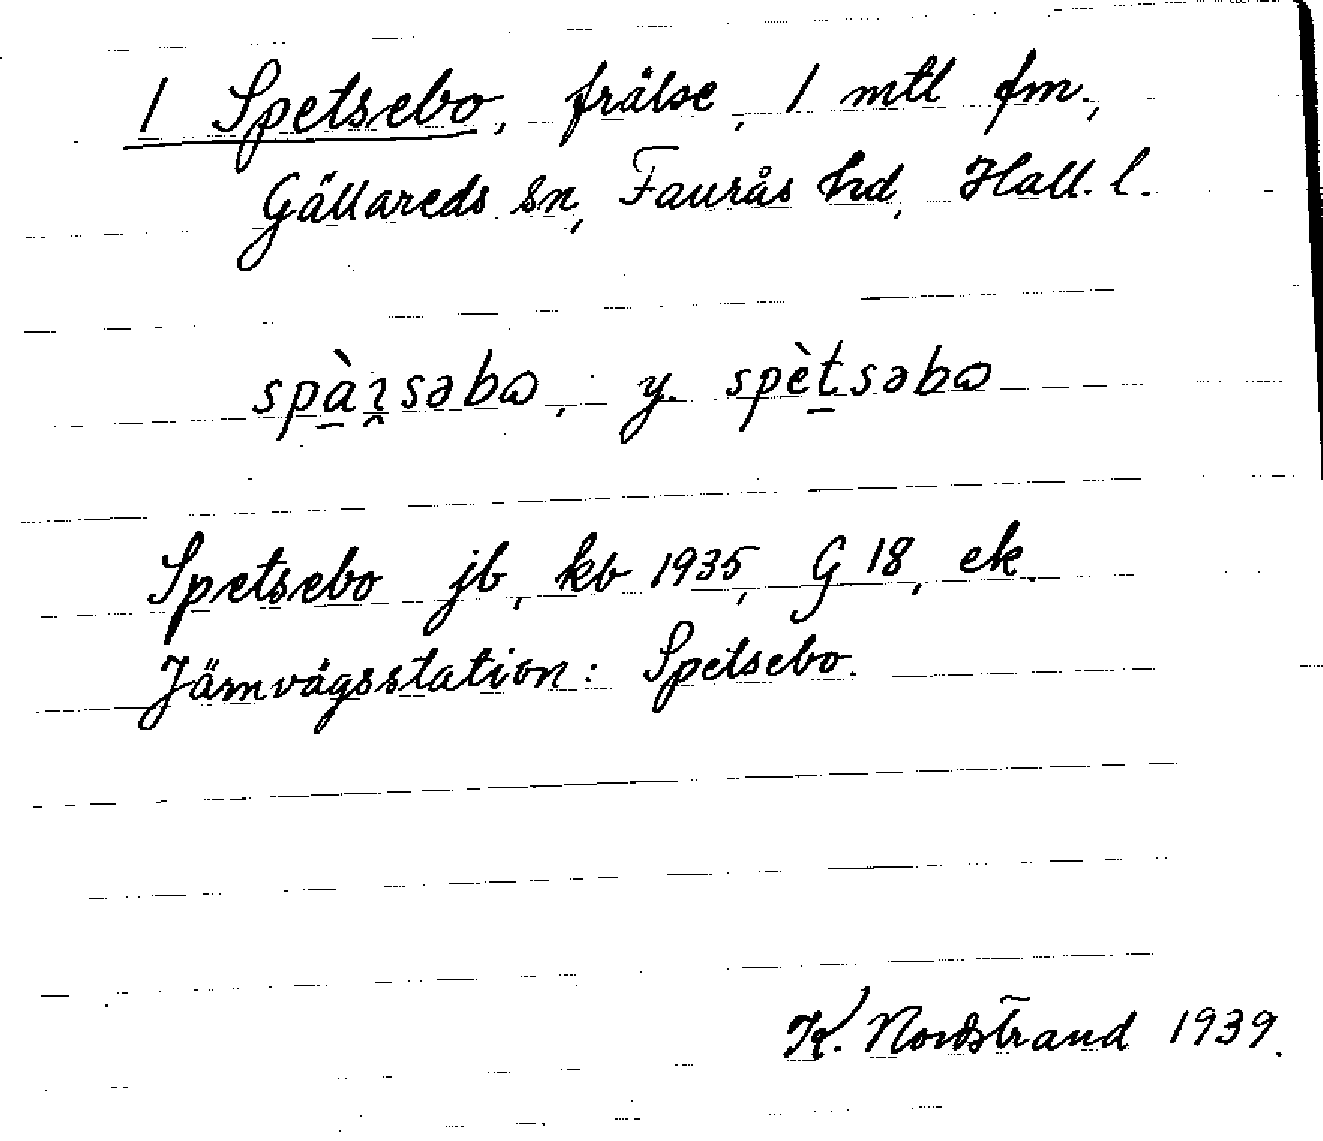 1 Spetsebo, frälse, 1 mtl fm.,
Gällareds sn, Faurås hd, Hall. l.
spàʅsəbɷ, y. spètsəbɷ
Spetsebo jb, kb 1935, G 18, ek.
Järnvägsstation: Spetsebo.
K. Nordstrand 1939.